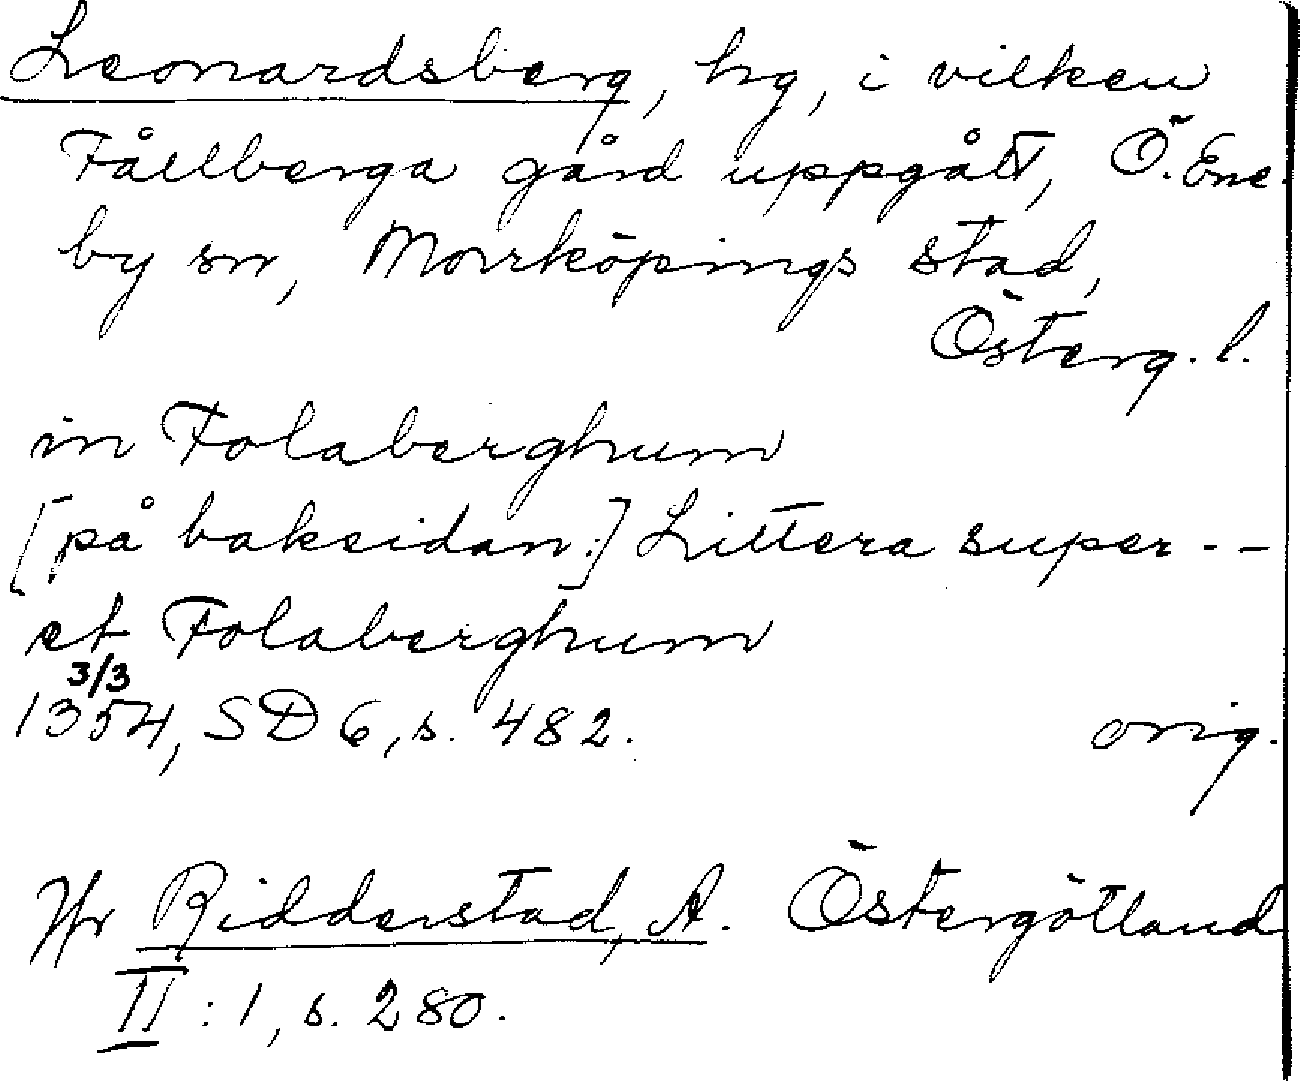 Leonardsberg, hg, i vilken
Fållberga gård uppgått, Ö. Ene-
by sn, Norrköpings stad,
Österg. l.
in Folaberghum
[på baksidan:] Littera super - -
et Folaberghum
3/3
1354, SD 6, s. 482. orig.
Jfr Ridderstad, A. Östergötland
II : 1, s. 280.